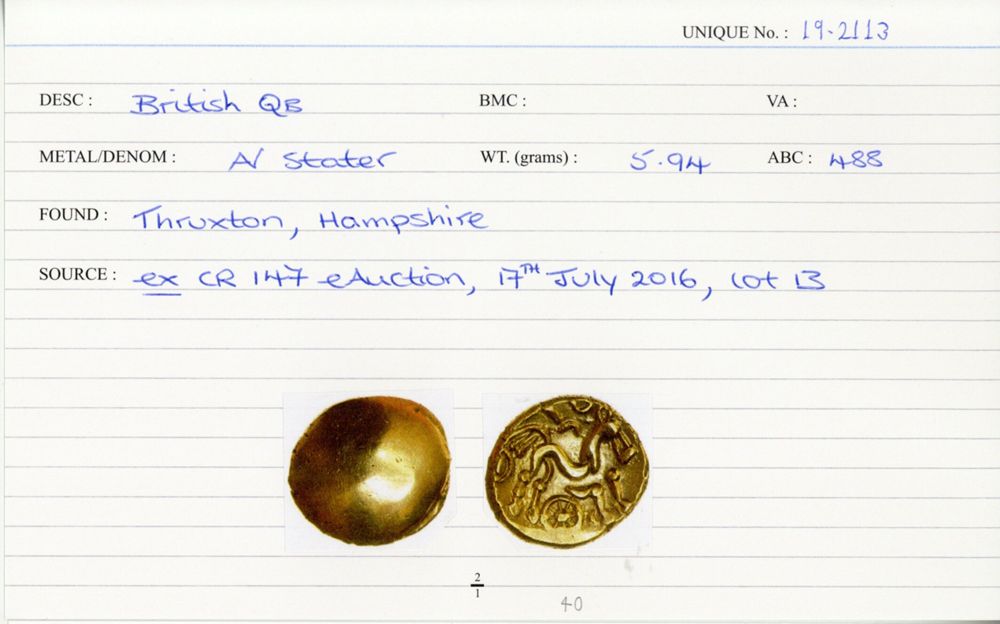 UNIQUE No. : 19-2113
DESC : British QB BMC : VA :
METAL/DENOM : AV Stater WT. (grams) : 5.94 ABC : 488
FOUND : Thruxton, Hampshire
SOURCE : ex CR 147 eAuction, 17TH July 2016, lot 13
2
1
40